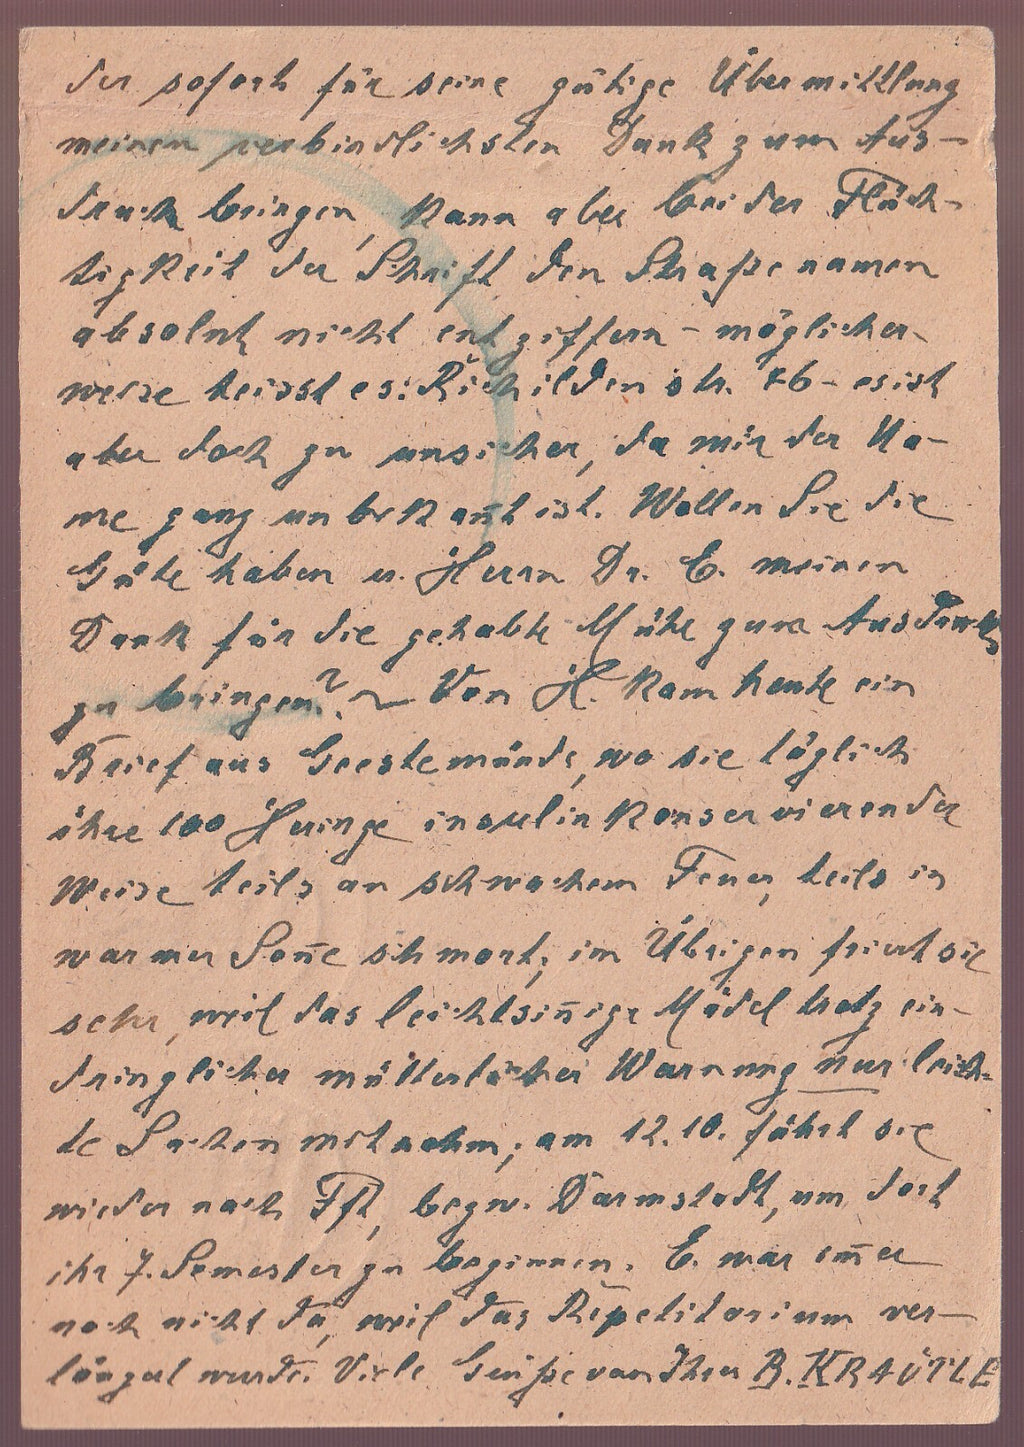 der sofort für seine gütige Übermittlung
meinen verbindlichsten Dank zum Aus-
druck bringen, kann aber bei der Flüch-
tigkeit der Schrift den Straßenamen
absolut nicht entziffern - möglicher-
weise heisst es: Richildenstr. 76 - es ist
aber doch zu unsicher, da mir der Na-
me ganz unbekan̄t ist. Wollen Sie die
Güte haben u. Herrn Dr. E. meinen
Dank für die gehabte Mühe zum Ausdruck
zu bringen? ~ Von H. kam heute ein
Brief aus Geestemünde, wo sie täglich
ihre 100 Heringe in konservierender
Weise teils an schwachem Feuer, teils in
warmer Son̄e schmort; im Übrigen friert sie
sehr, weil das leichtsin̄ige Mädel trotz ein-
dringlicher mütterlicher Warnung nur leich-
te Sachen mitnahm; am 12.10. fährt sie
wieder nach Fft, bezw. Darmstadt, um dort
ihr 7. Semester zu beginnen. E. war im̄er
noch nicht da, weil das Repetitorium ver-
längert wurde. Viele Grüße von Ihrer B. KRAUTLE